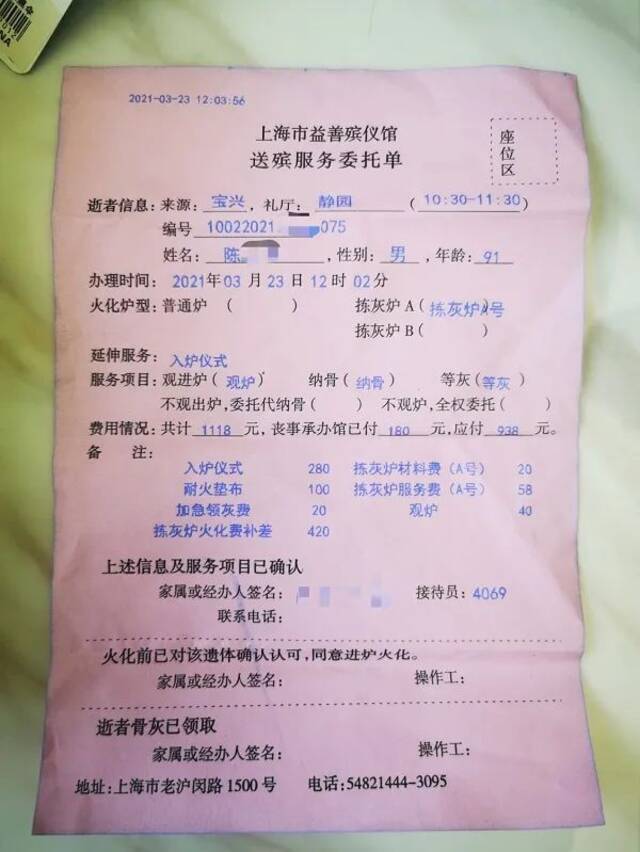 2021-03-23 12:03:56
上海市益善殡仪馆
送殡服务委托单
座位区
逝者信息:来源:宝兴,礼厅:静园(10:30-11:30)
编号 10022021 075
姓名:陈 ,性别:男,年龄:91
办理时间:2021年03月23日12时02分
火化炉型:普通炉( ) 拣灰炉A(拣灰炉A号)
拣灰炉B( )
延伸服务:入炉仪式
服务项目:观进炉(观炉) 纳骨(纳骨) 等灰(等灰)
不观出炉,委托代纳骨( ) 不观炉,全权委托( )
费用情况:共计1118元,丧事承办馆已付180元,应付938元。
备 注:
入炉仪式 280 拣灰炉材料费(A号) 20
耐火垫布 100 拣灰炉服务费(A号) 58
加急领灰费 20 观炉 40
拣灰炉火化费补差 420
上述信息及服务项目已确认
家属或经办人签名: 接待员:4069
联系电话:
火化前已对该遗体确认认可,同意进炉火化。
家属或经办人签名: 操作工:
逝者骨灰已领取
家属或经办人签名: 操作工:
地址:上海市老沪闵路1500号 电话:54821444-3095